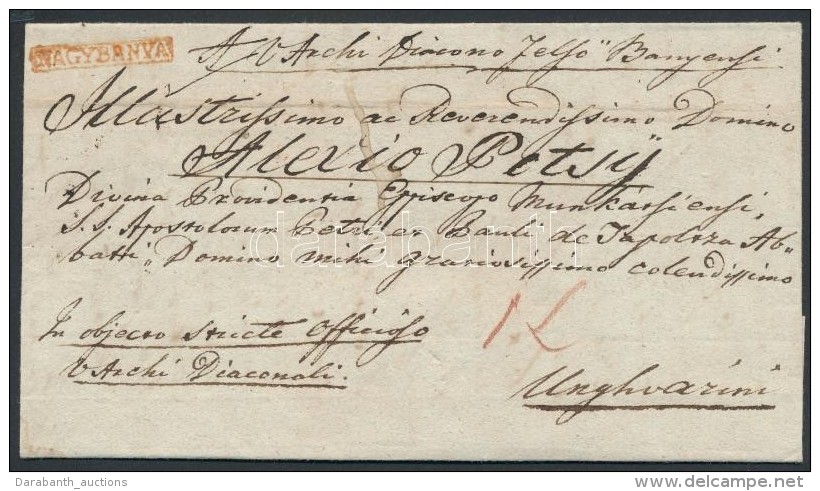 NAGYBANYA
A VArchi Diacono Felső Banyensi
Illustrissimo ac Reverendissimo Domino
Alexio Potsÿ
Divina Providentia Episcopo Munkatsiensi,
S. S. Apostolorum Petri et Pauli de Tapoltza Ab-
batti, Domino mihi gratiosissimo colendissimo
In objecto stricte Officioso
VArchi Diaconali.
Unghvarini
darabanth
Darabanth_auctions
www.delcampe.net